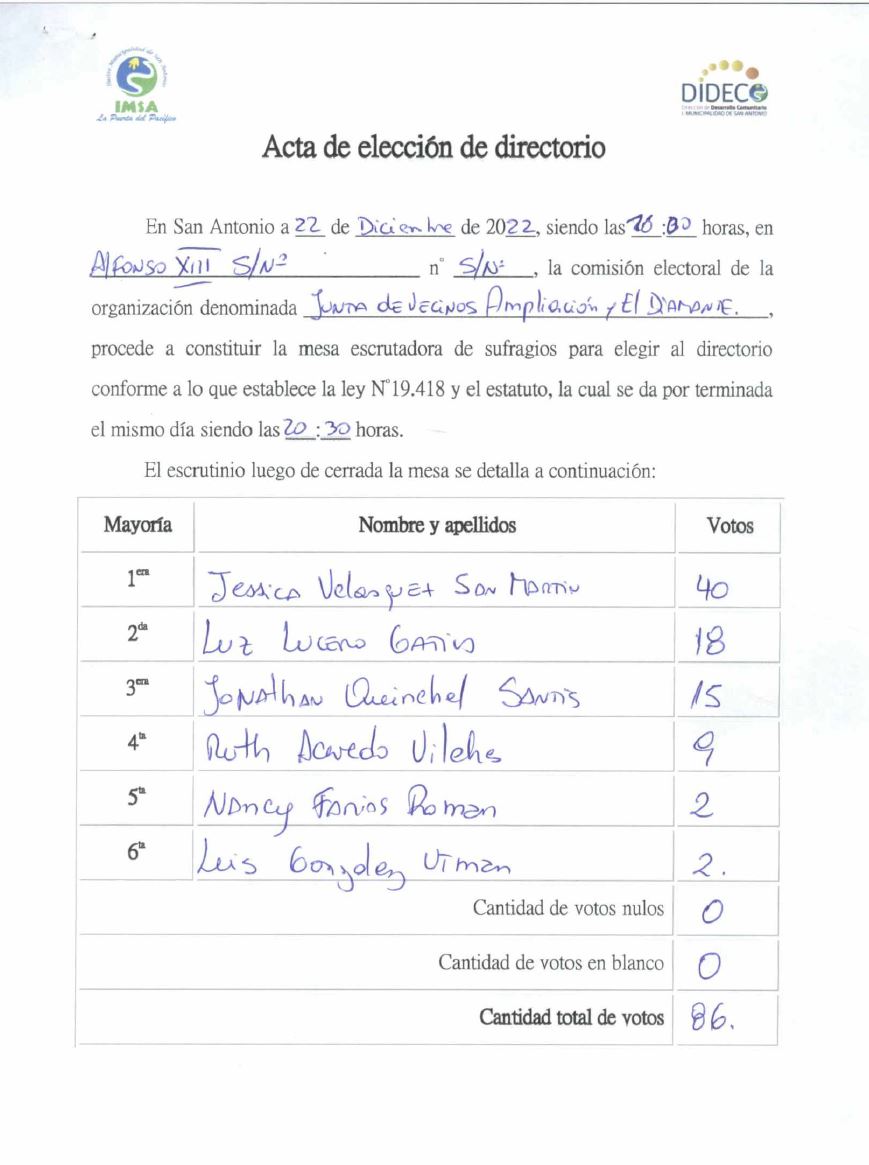 Ilustre Municipalidad de San Antonio
IMSA
La Puerta del Pacífico
DIDECO
Dirección de Desarrollo Comunitario
I. MUNICIPALIDAD DE SAN ANTONIO
Acta de elección de directorio
En San Antonio a 22 de Diciembre de 2022, siendo las :30 horas, en
Alfonso XIII S/Nº n° S/Nº, la comisión electoral de la
organización denominada Junta de Vecinos Ampliación y El Diamante.,
procede a constituir la mesa escrutadora de sufragios para elegir al directorio
conforme a lo que establece la ley N°19.418 y el estatuto, la cual se da por terminada
el mismo día siendo las 20 :30 horas.
El escrutinio luego de cerrada la mesa se detalla a continuación:
Mayoría Nombre y apellidos Votos
1era Jessica Velasquez San Martin 40
2da Luz Lucero 18
3era Jonathan Queinchel Santis 15
4ta Ruth Acevedo Vilches 9
5ta Nancy Farias Roman 2
6ta Luis Gonzalez 2.
Cantidad de votos nulos 0
Cantidad de votos en blanco 0
Cantidad total de votos 86.